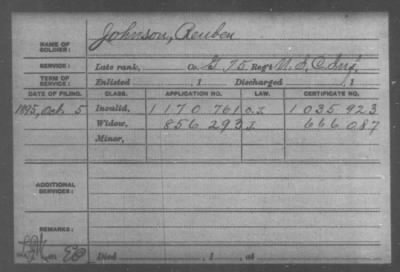 NAME OF SOLDIER: Johnson, Reuben
SERVICE: Late rank, Co. G 75 Reg't U.S.C. Inf.
TERM OF SERVICE: Enlisted , 1 Discharged , 1
DATE OF FILING. CLASS. APPLICATION NO. LAW. CERTIFICATE NO.
1895, Oct 5 Invalid, 1170 761 1035 923
Widow, 856 293 666 087
Minor,
ADDITIONAL SERVICES:
REMARKS:
Died , 1 , at